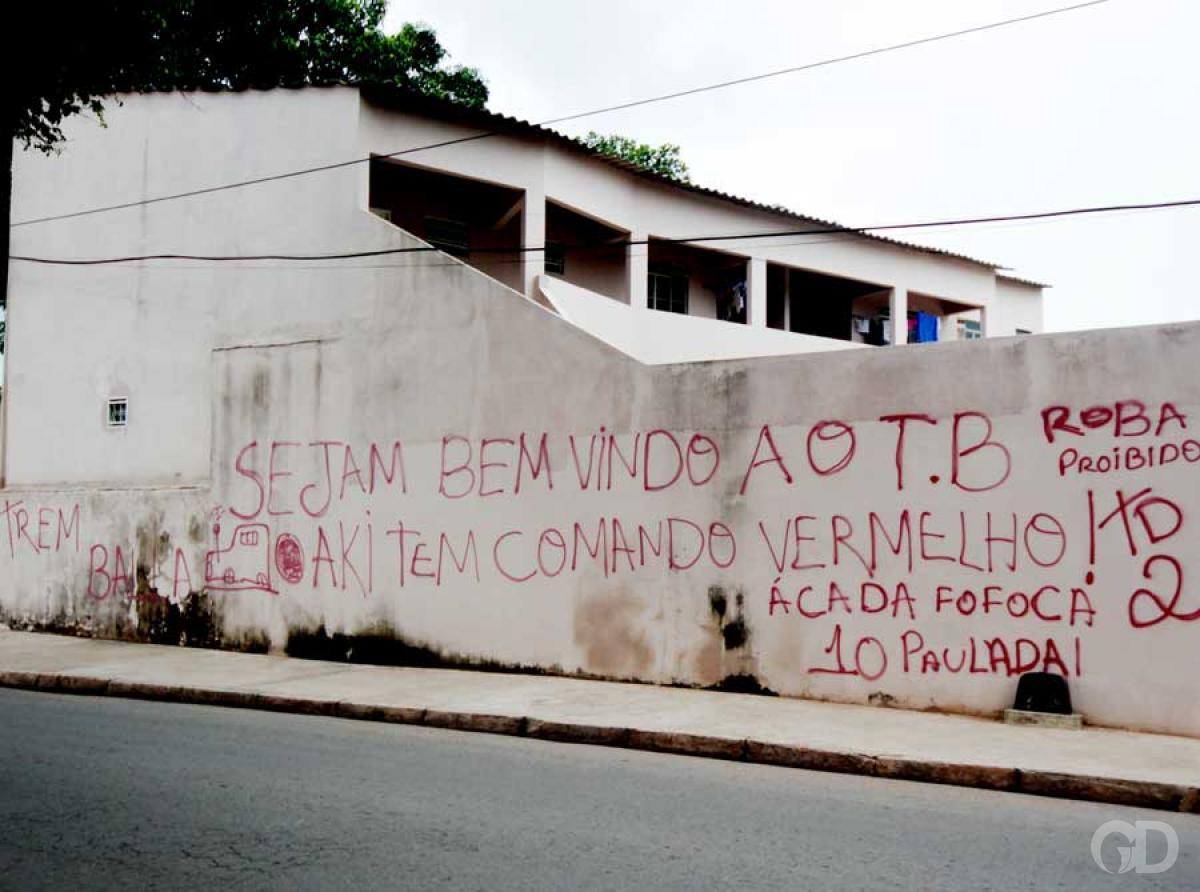 SEJAM BEM VINDO AO T.B
ROBA
PROIBIDO
TREM
BALA
AKI TEM COMANDO VERMELHO!
TD
2
ÁCADA FOFOCÁ
10 PAULADA!
GD